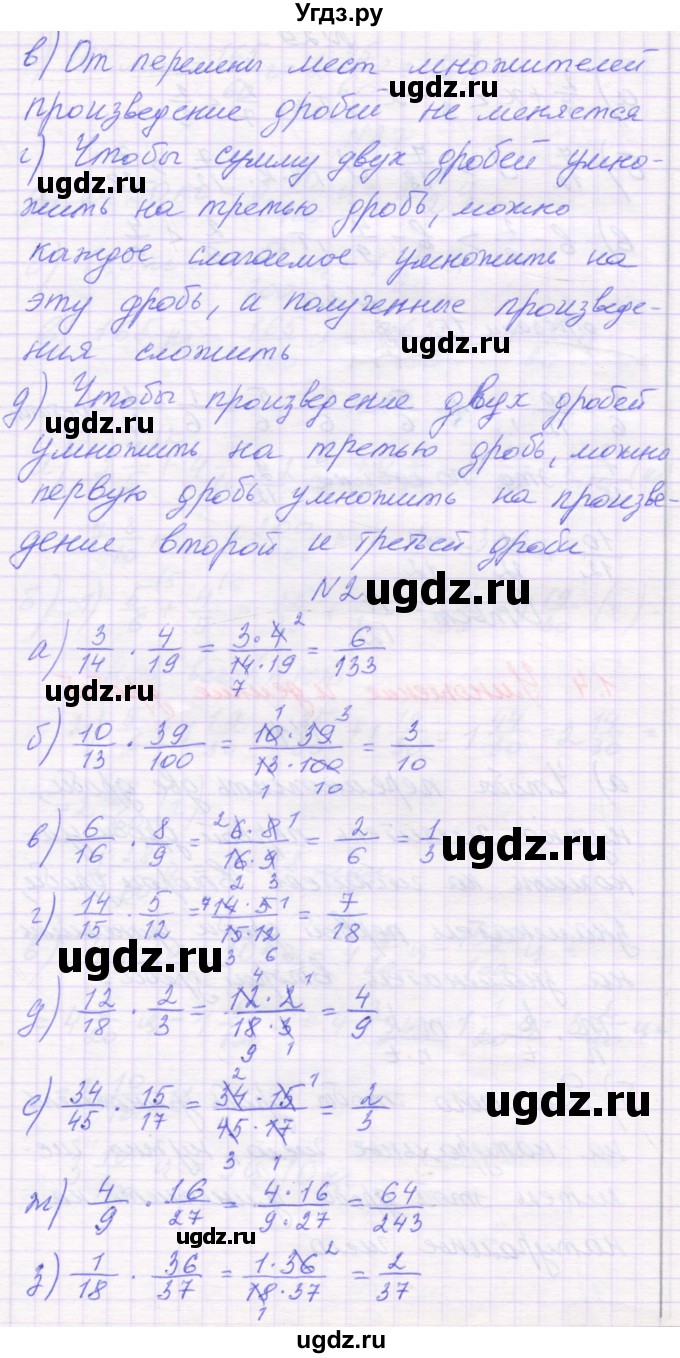 Угдз.ру
в) От перемены мест множителей
произведение дробей не меняется
г) Чтобы сумму двух дробей умно-
жить на третью дробь, можно
каждое слагаемое умножить на
эту дробь, а полученные произведе-
ния сложить
д) Чтобы произведение двух дробей
умножить на третью дробь, можно
первую дробь умножить на произве-
дение второй и третьей дроби
N2
а) 3/14 · 4/19 = 3·4²/14·19 7 = 6/133
б) 10/13 · 39/100 = 10¹·39³/13·100 1 10 = 3/10
в) 6/16 · 8/9 = ²6·8¹/16·9 2 3 = 2/6 = 1/3
г) 14/15 · 5/12 = ⁷14·5¹/15·12 3 6 = 7/18
д) 12/18 · 2/3 = 12⁴·2¹/18·3 9 1 = 4/9
е) 34/45 · 15/17 = 34²·15¹/45·17 3 1 = 2/3
ж) 4/9 · 16/27 = 4·16/9·27 = 64/243
з) 1/18 · 36/37 = 1·36²/18·37 1 = 2/37
ugdz.ru
ugdz.ru
ugdz.ru
ugdz.ru
ugdz.ru
ugdz.ru
ugdz.ru
ugdz.ru
ugdz.ru
ugdz.ru
ugdz.ru
ugdz.ru
ugdz.ru